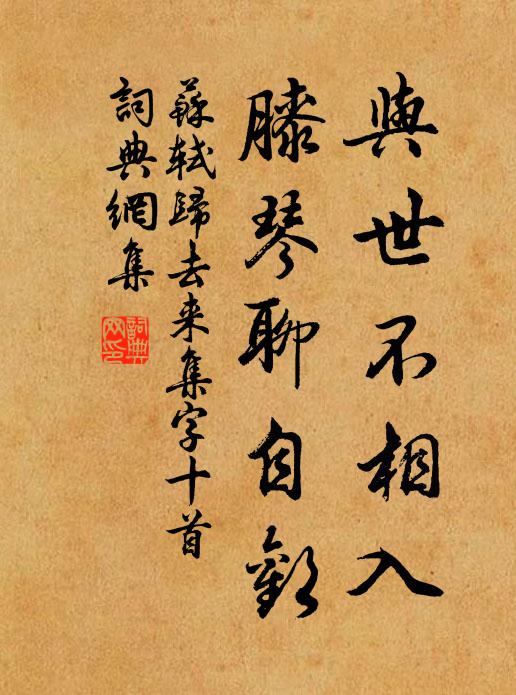 與世不相入
膝琴聊自歡
蘇軾歸去来集字十首
詞典網集
詞典网印